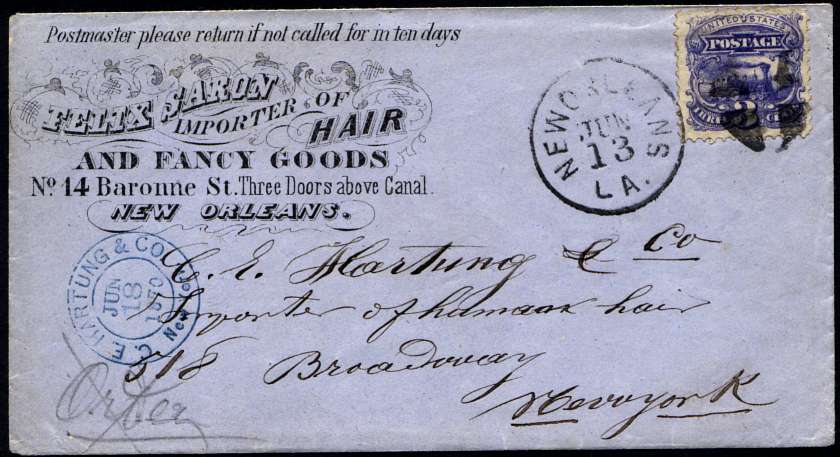 Postmaster please return if not called for in ten days
FELIX SARON
IMPORTER OF
HAIR
AND FANCY GOODS
No. 14 Baronne St. Three Doors above Canal.
NEW ORLEANS.
NEW ORLEANS
JUN
13
LA.
UNITED STATES
POSTAGE
C. E. HARTUNG & CO.
JUN
18
1870
New York
C. E. Hartung & Co
Importer of humaan hair
518 Broadway
Newyork
Order